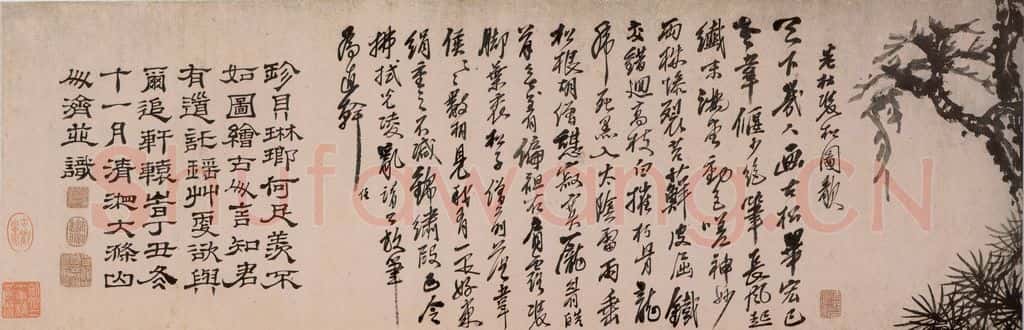 老杜雙松圖歌
天下幾人畫古松畢宏已
老韋偃少絕筆長風起
纖末滿堂動色嗟神妙
兩株慘裂苔蘚皮屈鐵
交錯迴高枝白摧朽骨龍
虎死黑入太陰雷雨垂
松根胡僧憩寂寞龐眉皓
首無著偏袒右肩露雙
脚葉裏松子僧前落韋
侯〻數相見我有一匹好東
絹重之不減錦繡段已令
拂拭光凌亂請公放筆
為直幹
珍貝琳瑯何足羨不
如圖繪古人言知君
有道託瑤艸更欲與
爾追軒轅旹丁丑冬
十一月清湘大滌山
人濟並識
Shufawang.CN